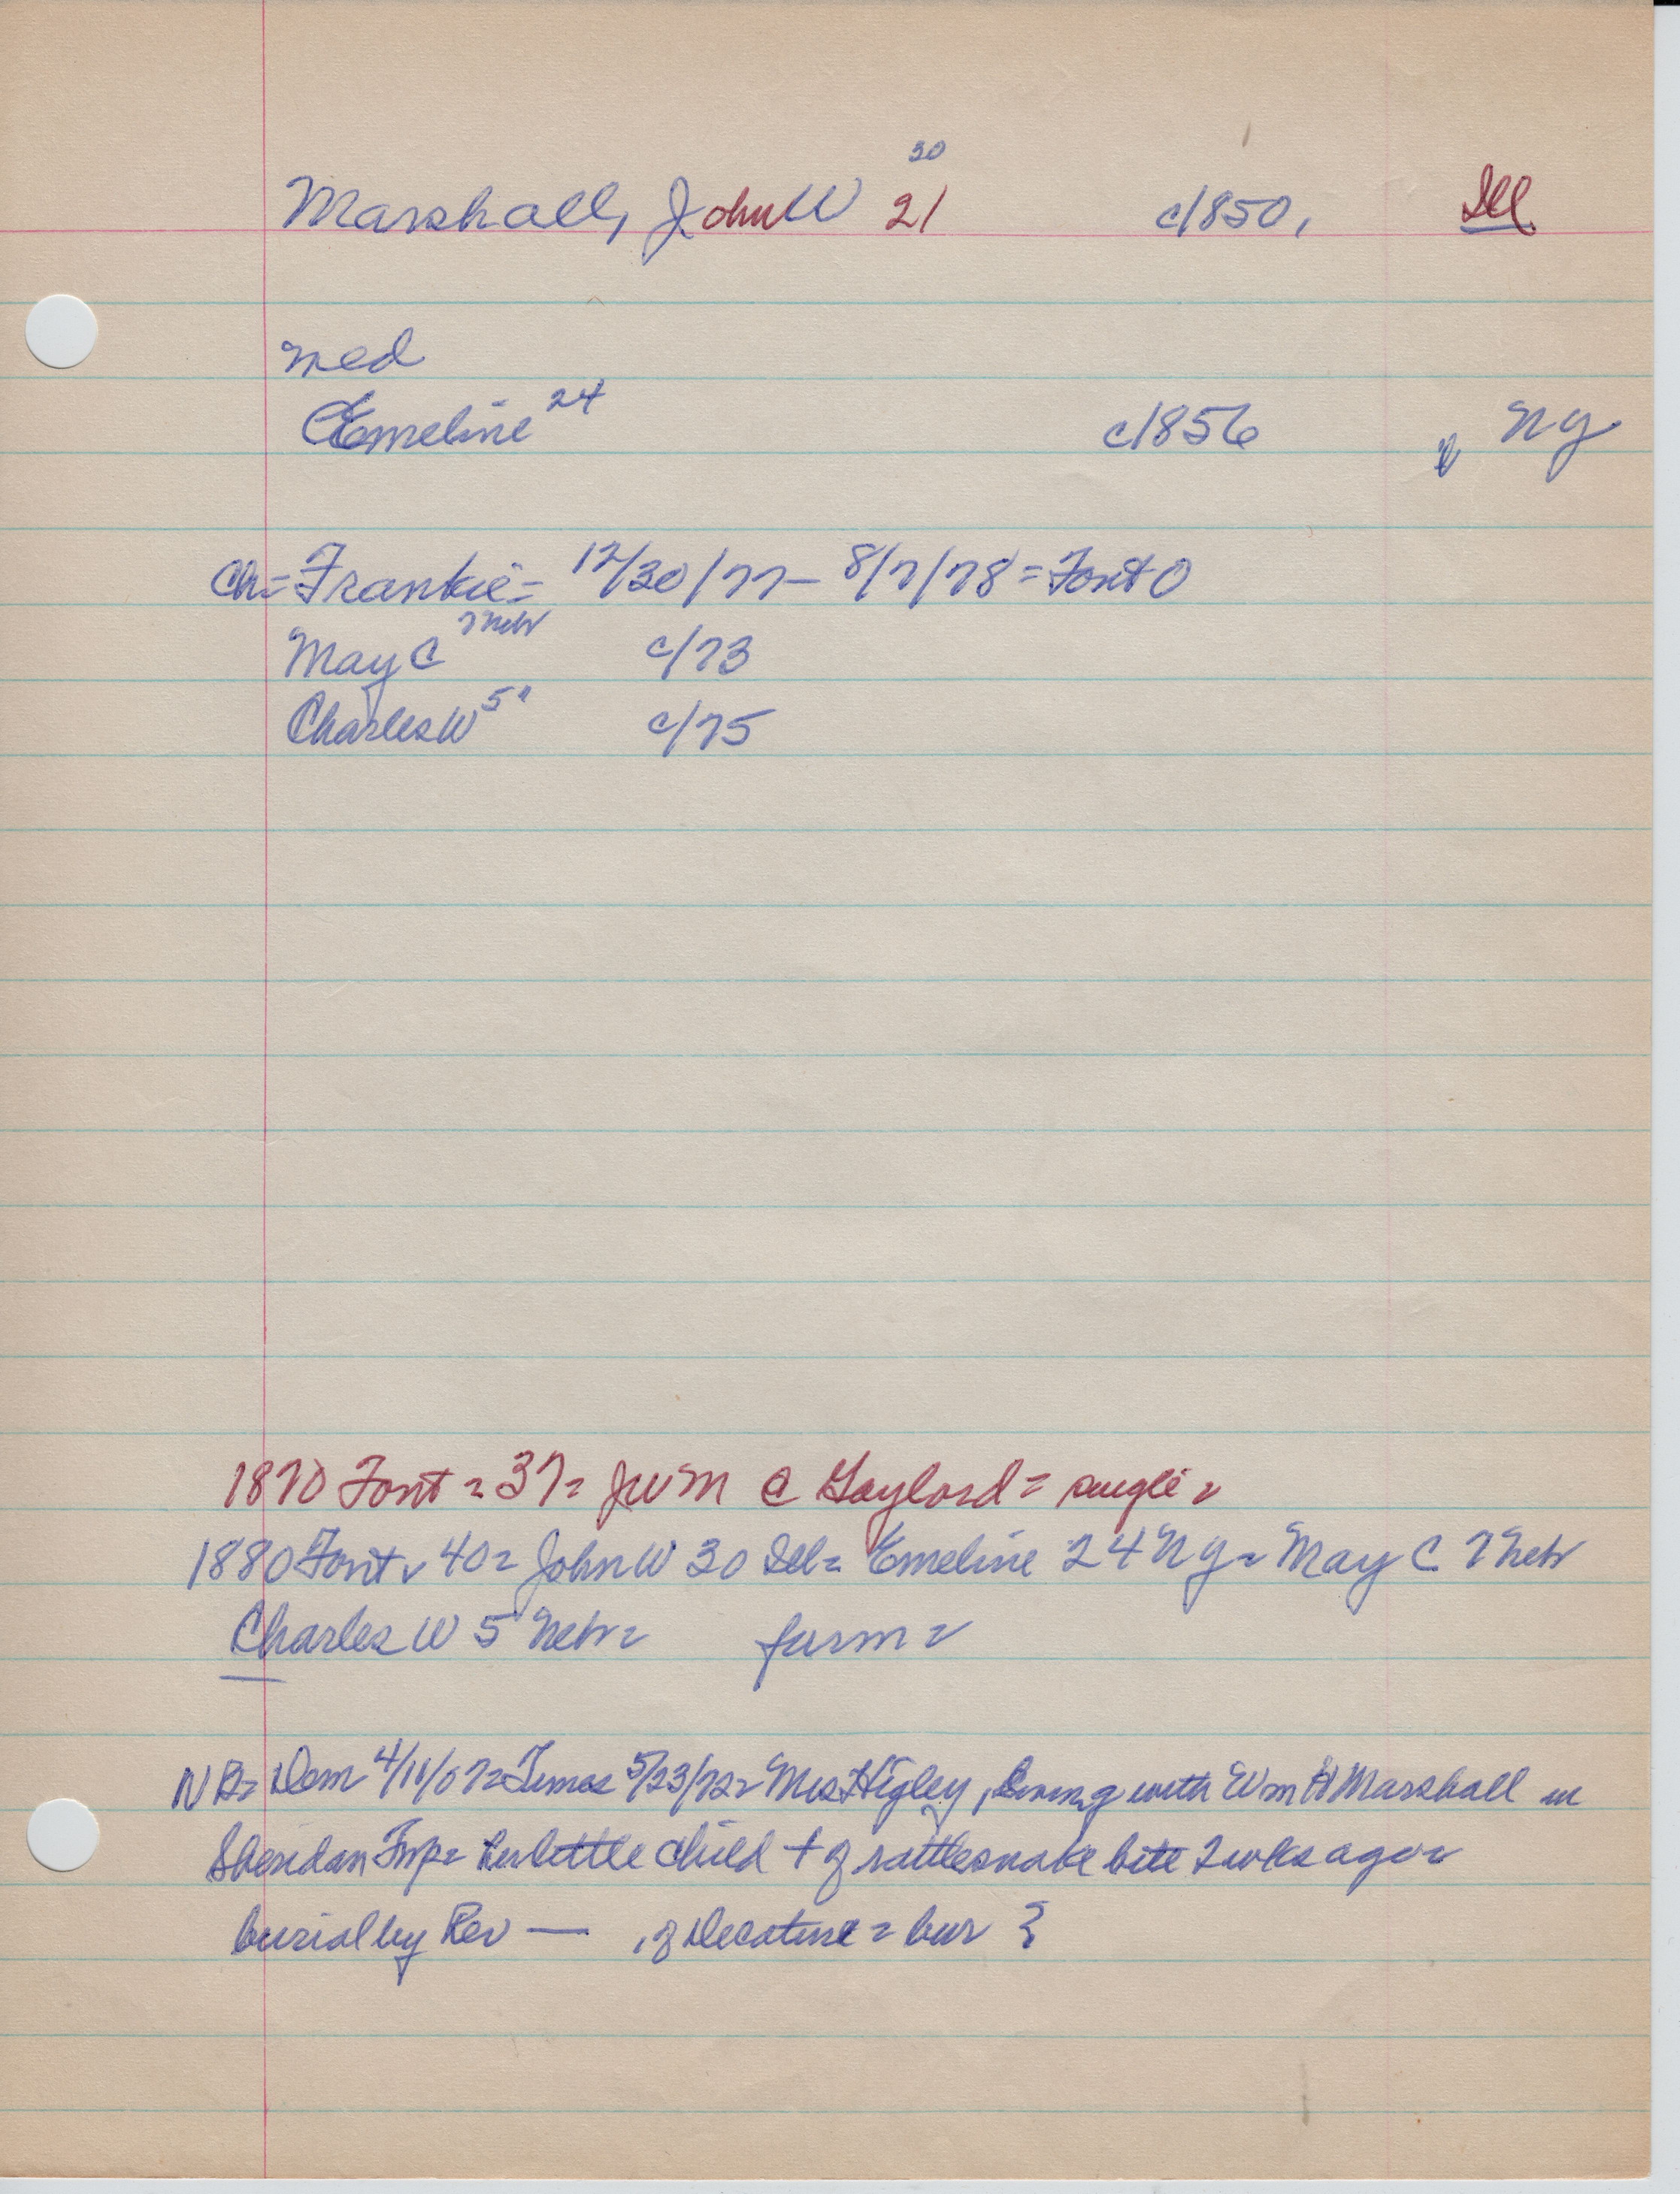 30
Marshall, John W 21 c/850, Ill
med
Emeline 24 c/856, NY
Ch= Frankie= 12/30/77- 8/7/78= Font O
May C 7 Nebr c/73
Charles W 5 " c/75
1870 Font = 37= JWM C Gaylord= single=
1880 Font= 40= John W 30 Ill= Emeline 24 NY= May C 7 Nebr
Charles W 5 Nebr= farm=
NB= Dem 4/11/07= Times 5/23/72= Mrs Higley, living with Wm H Marshall in
Sheridan Twp= her little child + of rattlesnake bite 2 wks ago=
burial by Rev — , of Decatur = bur ?